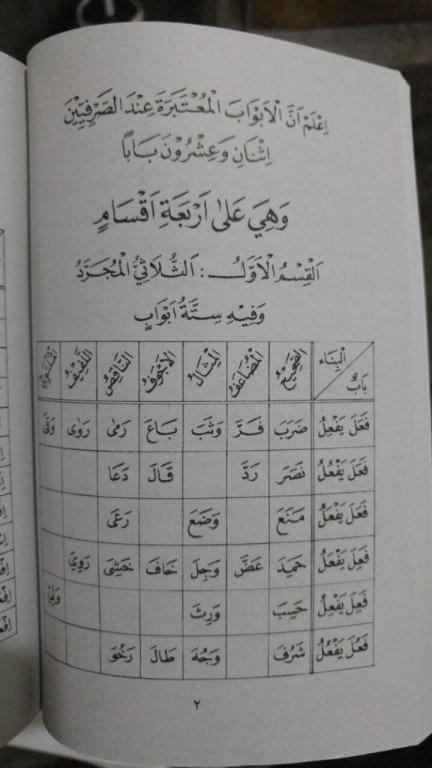 اِعْلَمْ اَنَّ الْاَبْوَابَ الْمُعْتَبَرَةَ عِنْدَ الصَّرْفِيِّيْنَ
اِثْنَانِ وَعِشْرُوْنَ بَابًا
وَهِيَ عَلٰى اَرْبَعَةِ اَقْسَامٍ
اَلْقِسْمُ الْاَوَّلُ : اَلثُّلَاثِيُّ الْمُجَرَّدُ
وَفِيْهِ سِتَّةُ اَبْوَابٍ
اَلْبِنَاء بَابُ اَلصَّحِيْحُ اَلْمُضَاعَفُ اَلْمِثَالُ اَلْاَجْوَفُ اَلنَّاقِصُ اَللَّفِيْفُ
فَعَلَ يَفْعِلُ ضَرَبَ فَرَّ وَثَبَ بَاعَ رَمٰى رَوٰى وَقٰى
فَعَلَ يَفْعُلُ نَصَرَ رَدَّ قَالَ دَعَا
فَعَلَ يَفْعَلُ مَنَعَ وَضَعَ رَعٰى
فَعِلَ يَفْعَلُ حَمِدَ عَضَّ وَجِلَ خَافَ خَشِيَ رَوِيَ
فَعِلَ يَفْعِلُ حَسِبَ وَرِثَ وَلِيَ
فَعُلَ يَفْعُلُ شَرُفَ وَجُهَ طَالَ رَخُوَ
٢